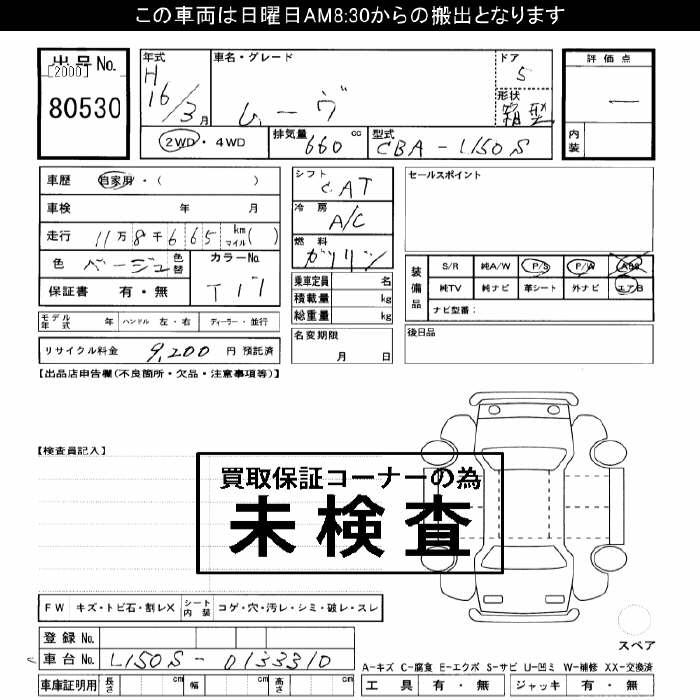 この車両は日曜日AM8:30からの搬出となります
出品No.
[2000]
80530
年式
H
16/3月
車名・グレード
ムーヴ
ドア
5
形状
箱型
評価点
—
内装
2WD・4WD
排気量
660 cc
型式
CBA-L150S
車歴 自家用・( )
車検 年 月
走行 11万8千665 km マイル( )
色 ベージュ 色替
カラーNo.
T17
保証書 有・無
モデル年式 年 ハンドル 左・右 ディーラー・並行
リサイクル料金 9,200 円 預託済
シフト
CAT
冷房
A/C
燃料
ガソリン
乗車定員 名
積載量 kg
総重量 kg
名変期限
月 日
セールスポイント
装備品
S/R 純A/W P/S P/W ABS
純TV 純ナビ 革シート 外ナビ エアB
ナビ型番:
後日品
【出品店申告欄(不良箇所・欠品・注意事項等)】
【検査員記入】
買取保証コーナーの為
未検査
FW キズ・トビ石・割レX シート内装 コゲ・穴・汚レ・シミ・破レ・スレ
登録No.
車台No. L150S-0133310
車庫証明用 長さ cm 幅 cm 高さ cm
スペア
A-キズ C-腐食 E-エクボ S-サビ U-凹ミ W-補修 XX-交換済
工具 有・無 ジャッキ 有・無